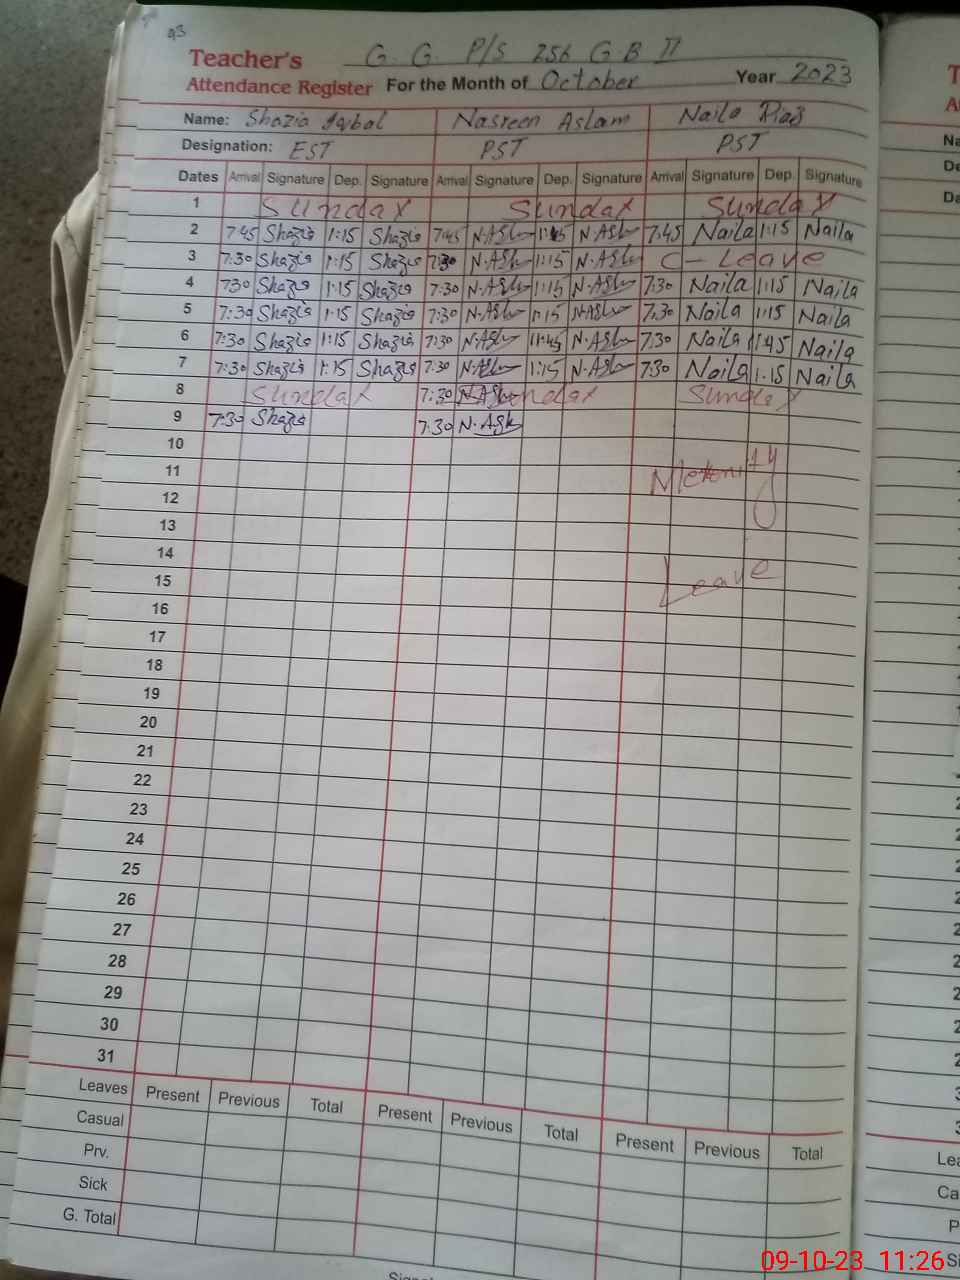 93
Teacher's G. G. P/S 256 G.B II
Attendance Register For the Month of October Year 2023
Name: Shazia Iqbal Nasreen Aslam Naila Riaz
Designation: EST PST PST
Dates Arrival Signature Dep. Signature Arrival Signature Dep. Signature Arrival Signature Dep. Signature
1 Sunday Sunday Sunday
2 7:45 Shazia 1:15 Shazia 7:45 N.Aslm N.Aslm 7:45 Naila 1:15 Naila
3 7:30 Shazia 1:15 Shazia 7:30 N.Aslm 1:15 N.Aslm C - Leave
4 730 Shazia 1:15 Shazia 7:30 N.Aslm 1:15 N.Aslm 7:30 Naila 1:15 Naila
5 7:30 Shazia 1:15 Shazia 7:30 N.Aslm 1:15 N.Aslm 7:30 Naila 1:15 Naila
6 7:30 Shazia 1:15 Shazia 7:30 N.Aslm 11:45 N.Aslm 7:30 Naila 11:45 Naila
7 7:30 Shazia 1:15 Shazia 7:30 N.Aslm 1:15 N.Aslm 7:30 Naila 1:15 Naila
8 Sunday 7:30 Sunday Sunday
9 7:30 Shazia 7:30 N.Aslm
10
11 Meternity
12
13
14
15 Leave
16
17
18
19
20
21
22
23
24
25
26
27
28
29
30
31
Leaves Present Previous Total Present Previous Total Present Previous Total
Casual
Prv.
Sick
G. Total
09-10-23 11:26